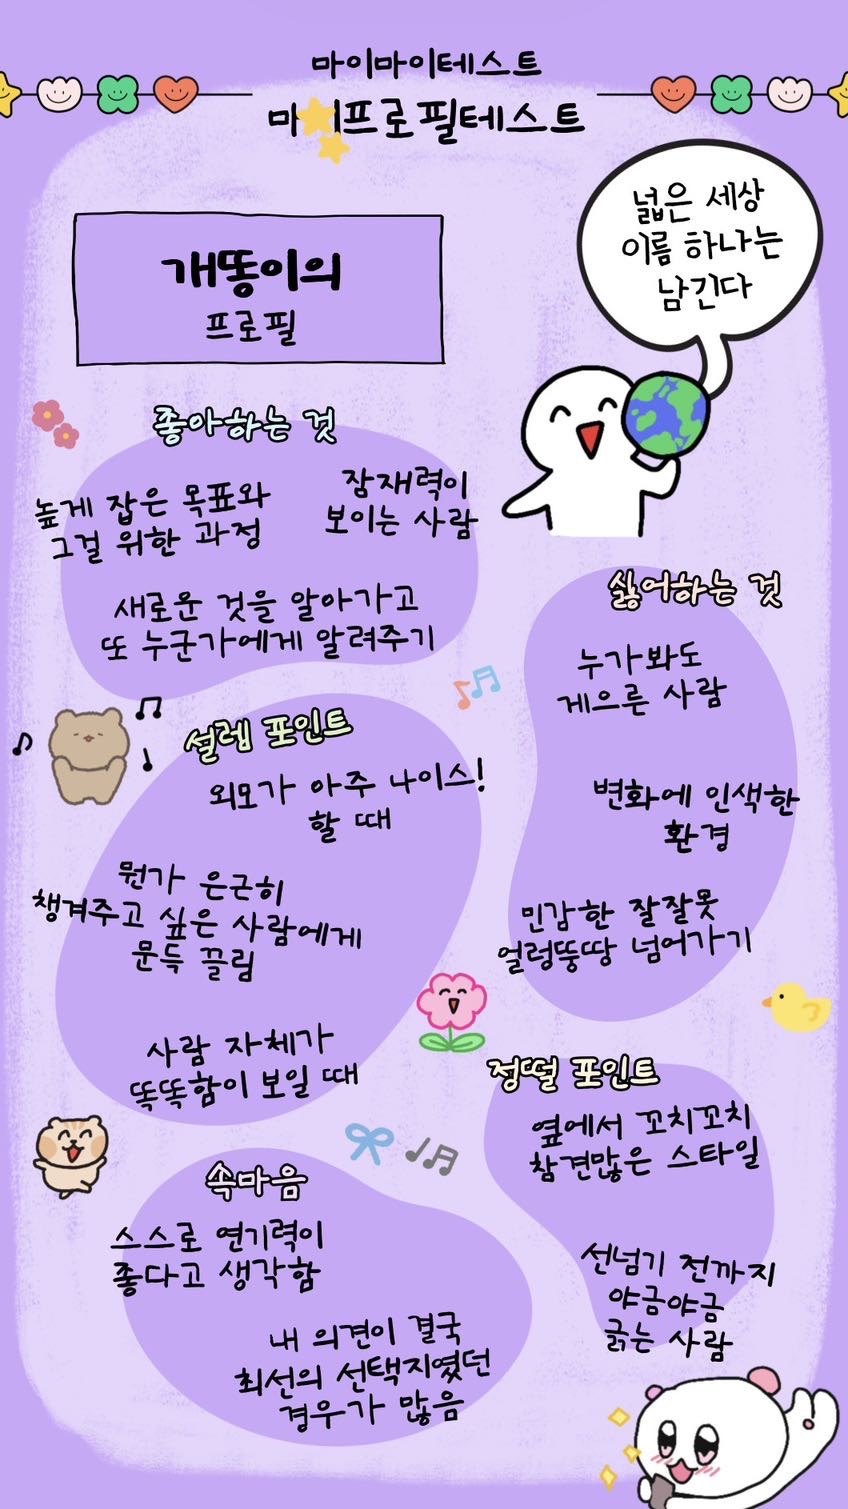 마이마이테스트
마이프로필테스트
넓은 세상
이름 하나는
남긴다
개똥이의
프로필
좋아하는 것
높게 잡은 목표와
그걸 위한 과정
잠재력이
보이는 사람
새로운 것을 알아가고
또 누군가에게 알려주기
싫어하는 것
누가봐도
게으른 사람
변화에 인색한
환경
민감한 잘잘못
얼렁뚱땅 넘어가기
설렘 포인트
외모가 아주 나이스!
할 때
뭔가 은근히
챙겨주고 싶은 사람에게
문득 끌림
사람 자체가
똑똑함이 보일 때
정떨 포인트
옆에서 꼬치꼬치
참견많은 스타일
선넘기 전까지
야금야금
긁는 사람
속마음
스스로 연기력이
좋다고 생각함
내 의견이 결국
최선의 선택지였던
경우가 많음